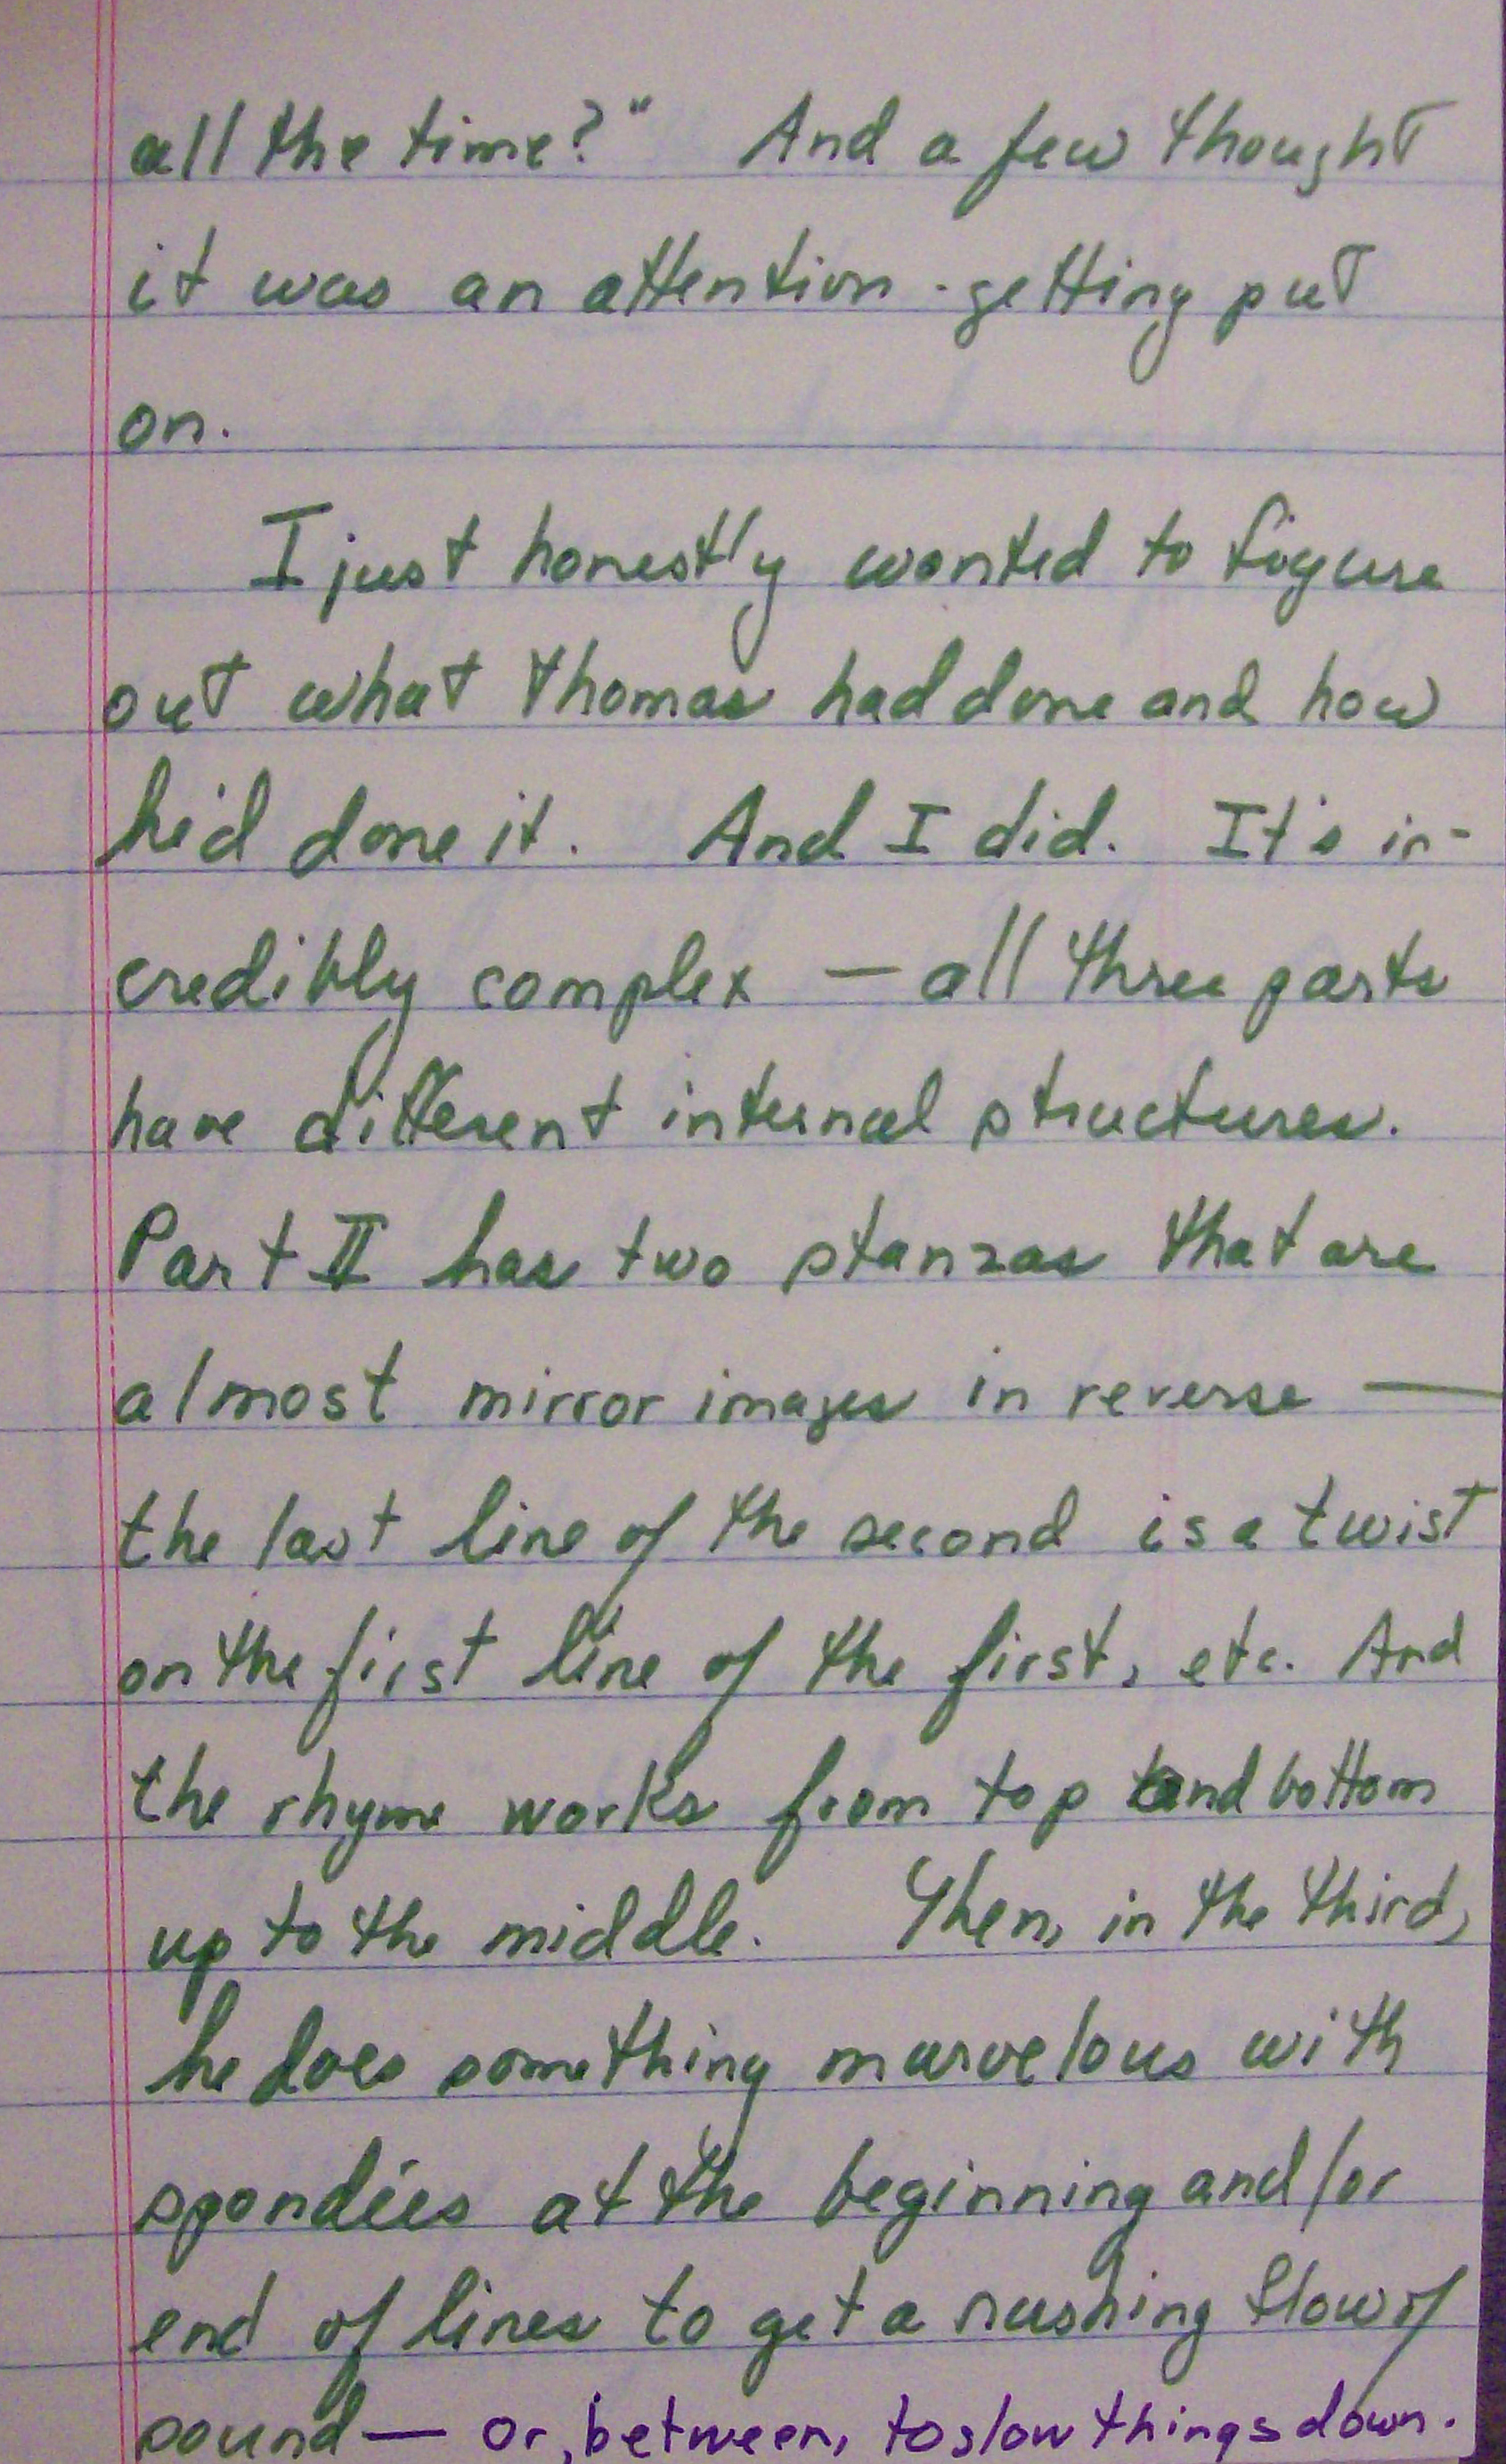 all the time?" And a few thought
it was an attention-getting put
on.
I just honestly wanted to figure
out what Thomas had done and how
he'd done it. And I did. It's in-
credibly complex — all three parts
have different internal structures.
Part II has two stanzas that are
almost mirror images in reverse —
the last line of the second is a twist
on the first line of the first, etc. And
the rhyme works from top and bottom
up to the middle. Then, in the third,
he does something marvelous with
spondees at the beginning and/or
end of lines to get a rushing flow of
sound — or, between, to slow things down.